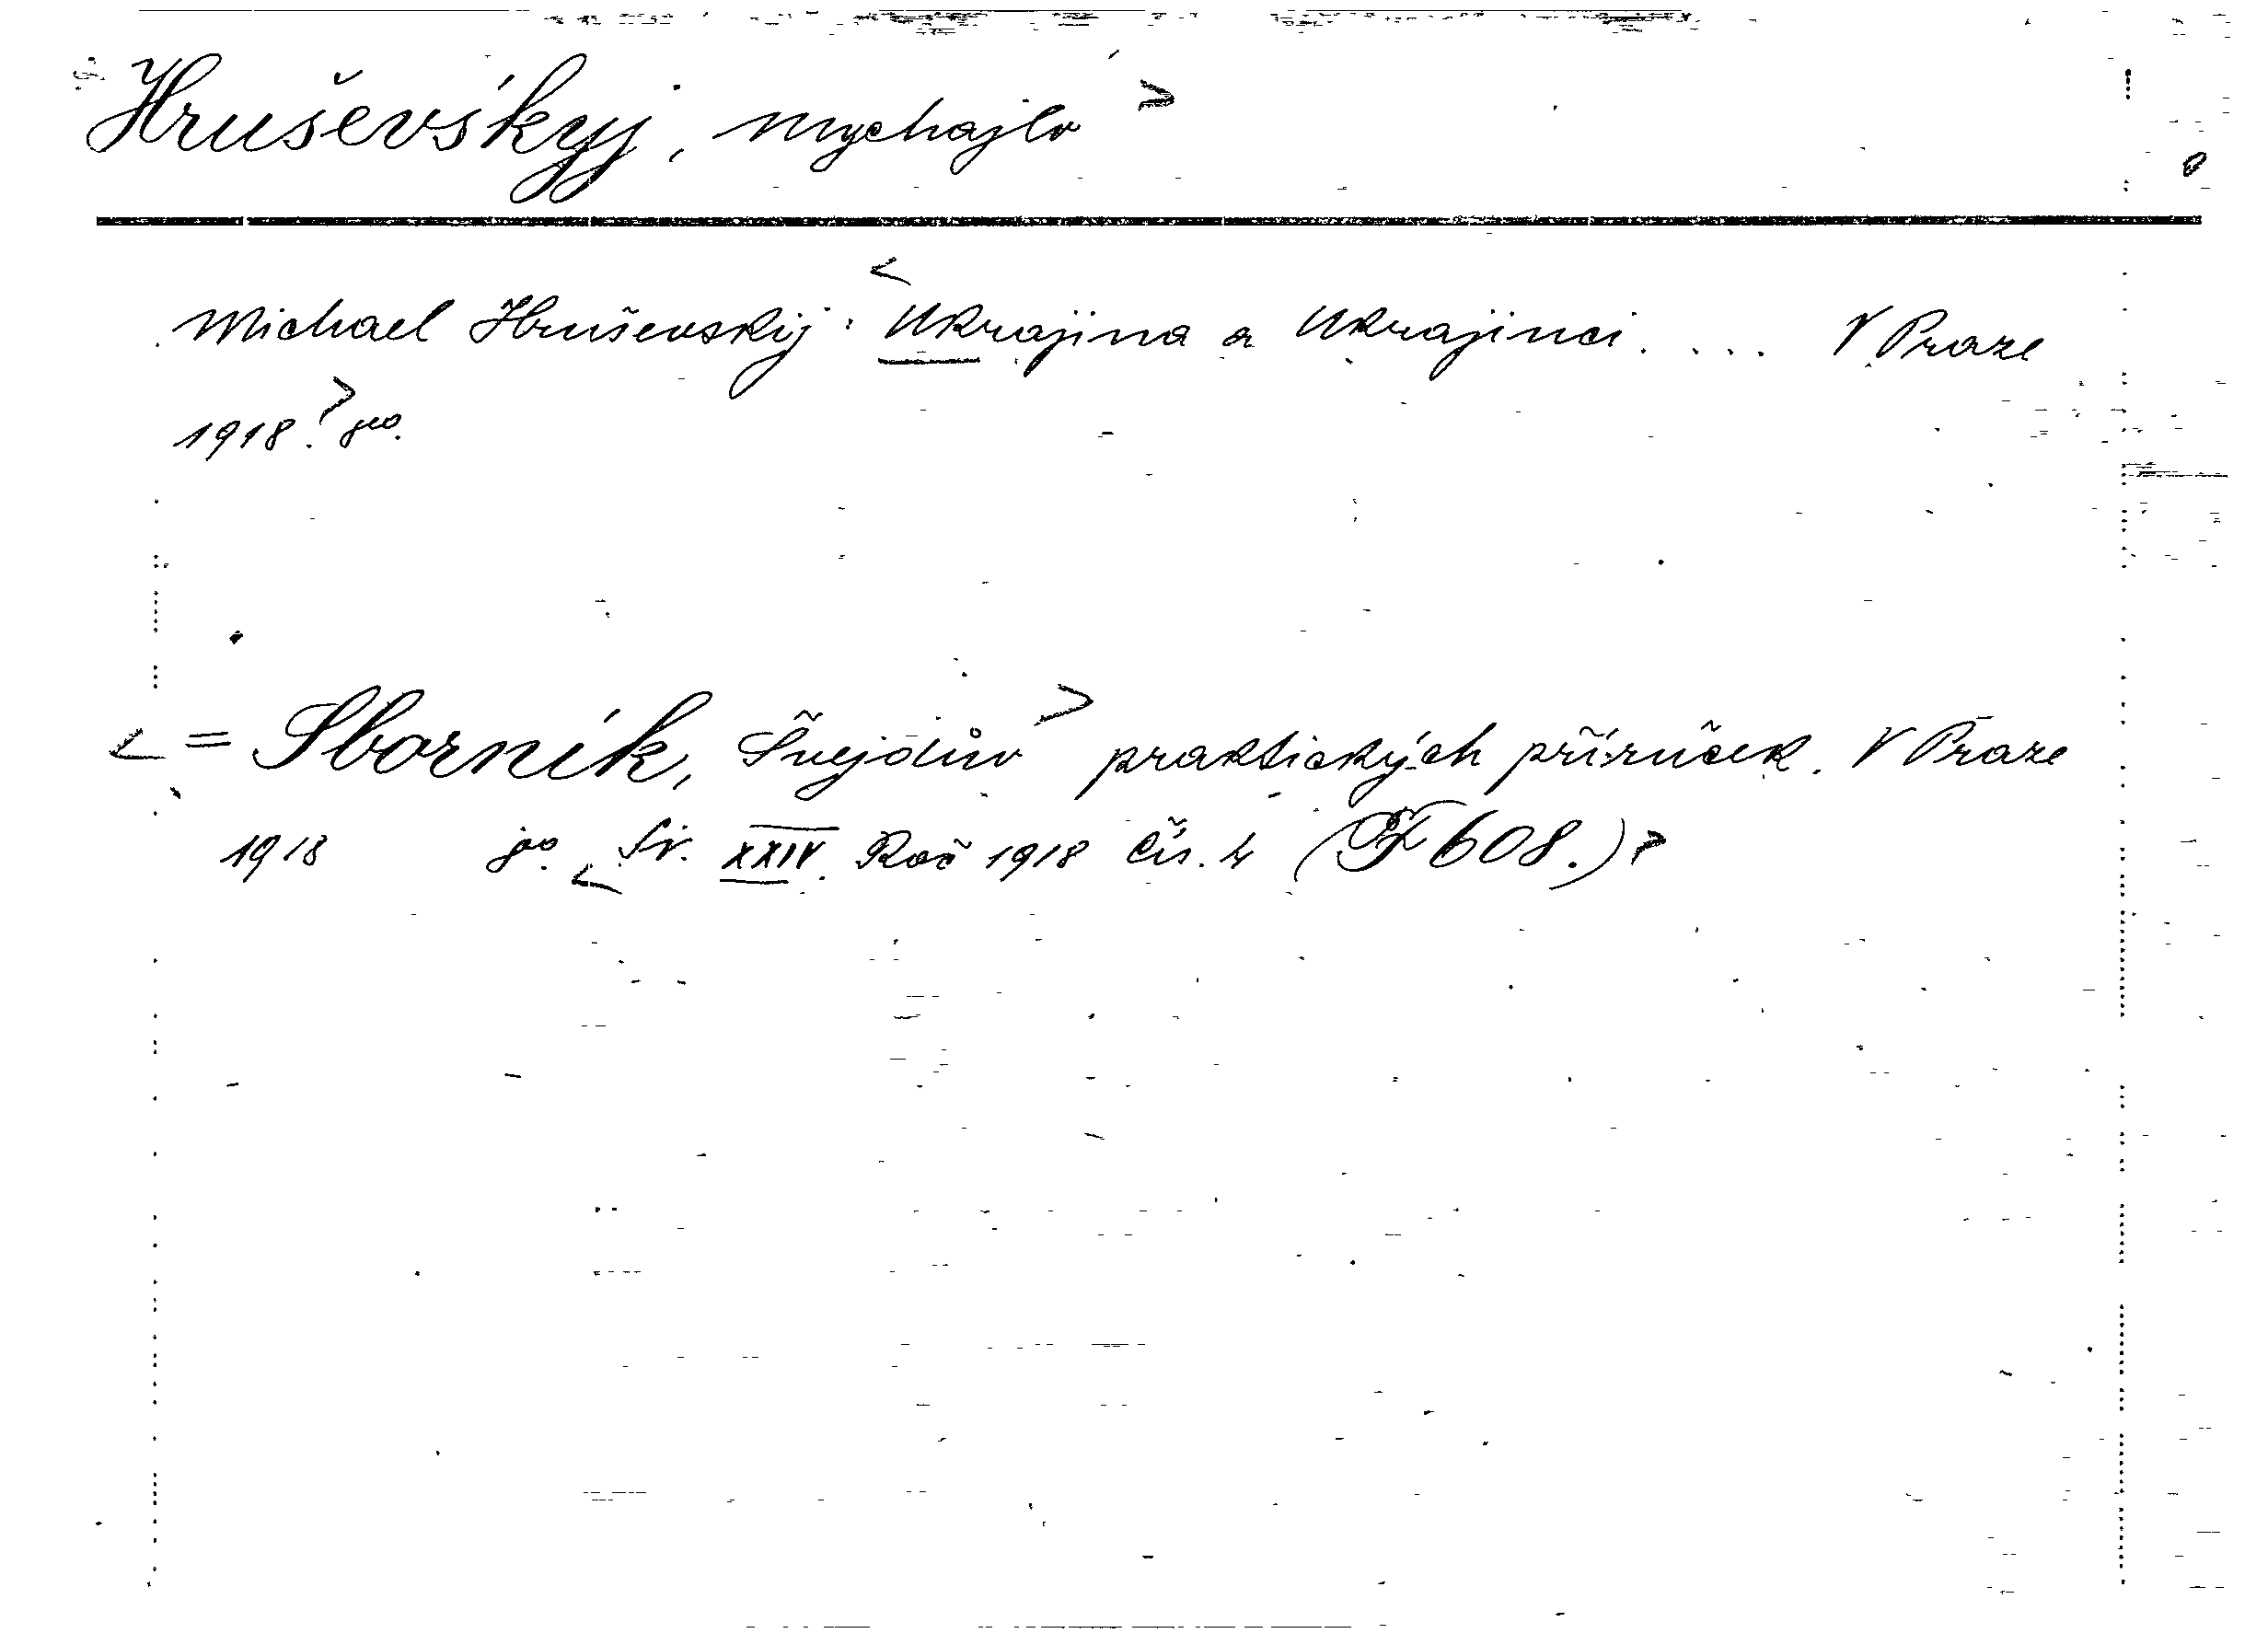 Hruševśkyj, Mychajlo >
< Michael Hruševskij: Ukrajina a Ukrajinci. ... V Praze
1918. > 
< = Sborník, Švejdův > praktických příruček. V Praze
1918 < Sv. XXIV. Roč 1918 čís. 4 (F 608.) >